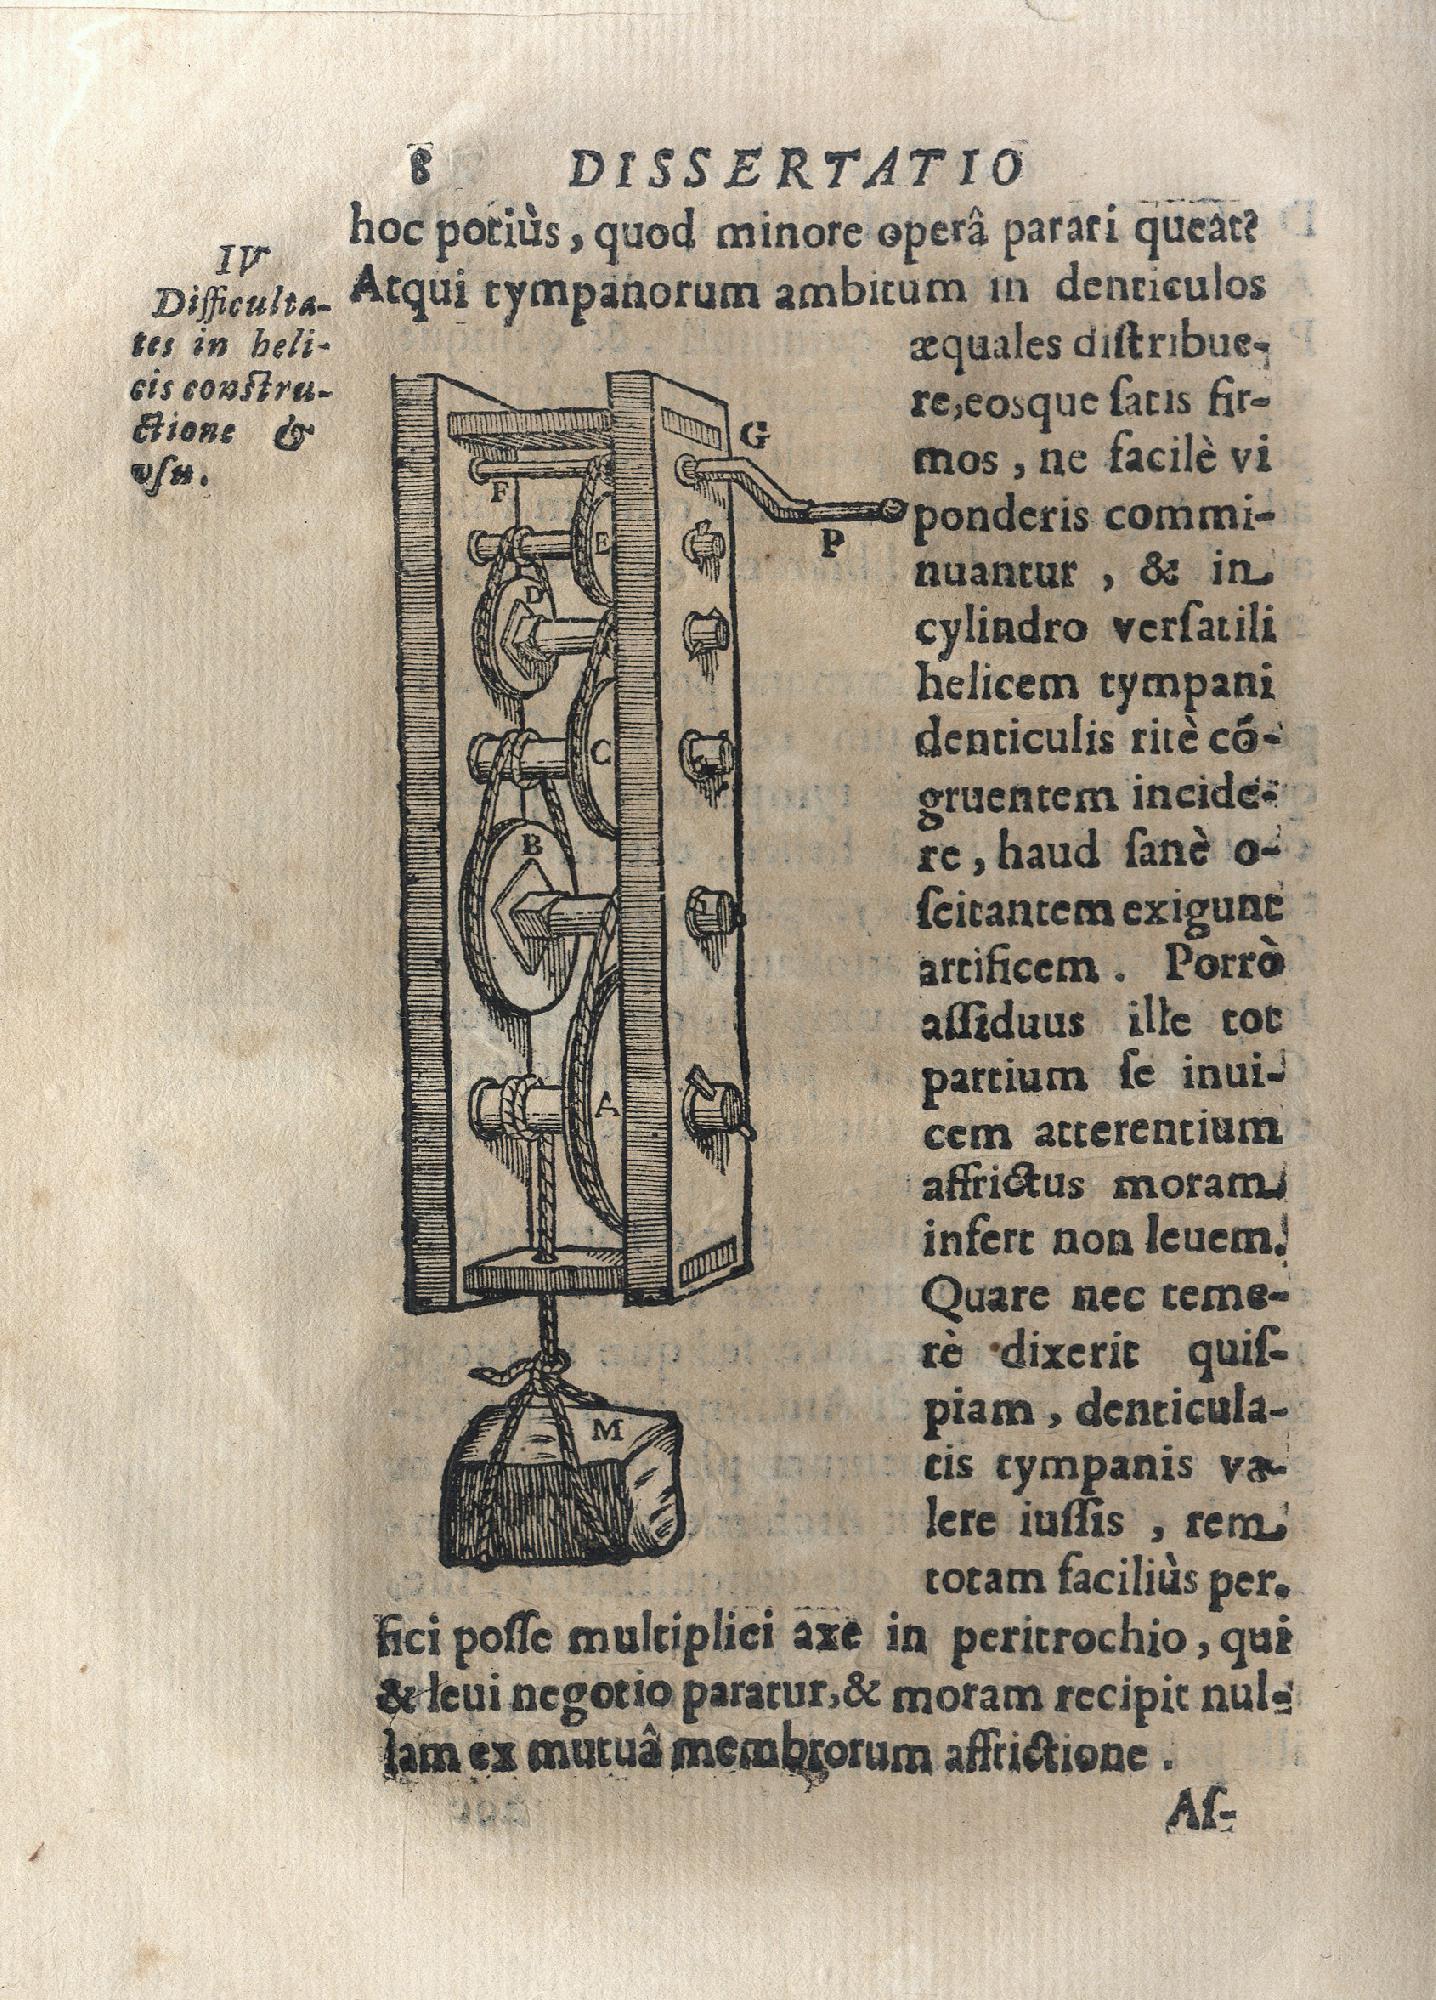 8 DISSERTATIO
hoc potiùs, quod minore operâ parari queat?
Atqui tympanorum ambitum in denticulos
IV
Difficulta-
tes in heli-
cis constru-
ctione &
vsu.
æquales diſtribue-
re, eosque ſatis fir-
mos, ne facilè vi
ponderis commi-
nuantur, & in
cylindro verſatili
helicem tympani
denticulis ritè cõ-
gruentem incide-
re, haud ſanè o-
ſcitantem exigunt
artificem. Porrò
aſſiduus ille tot
partium ſe inui-
cem atterentium
affrictus moram
infert non leuem.
Quare nec teme-
rè dixerit quiſ-
piam, denticula-
tis tympanis va-
lere iuſſis, rem
totam faciliùs per-
G
F
P
E
D
C
B
A
M
fici poſſe multiplici axe in peritrochio, qui
& leui negotio paratur, & moram recipit nul-
lam ex mutuâ membrorum affrictione.
Aſ-